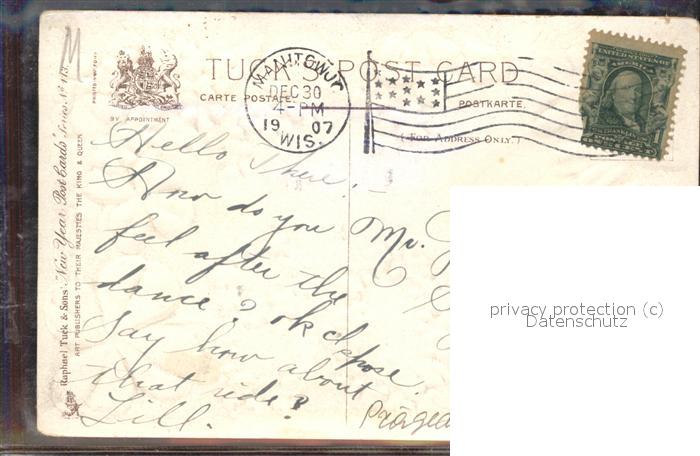 M
TUCK'S POST CARD
CARTE POSTALE.
POSTKARTE.
(FOR ADDRESS ONLY.)
BY APPOINTMENT
MANITOWOC
DEC 30
4-PM
1907
WIS.
UNITED STATES OF
AMERICA
FRANKLIN
Raphael Tuck & Sons' "New Year" Post Cards" Series No
ART PUBLISHERS TO THEIR MAJESTIES THE KING & QUEEN
Hello There!
How do you
feel after the
dance? ok
Say how about
that ride?
Lill.
Mr.
privacy protection (c)
Datenschutz